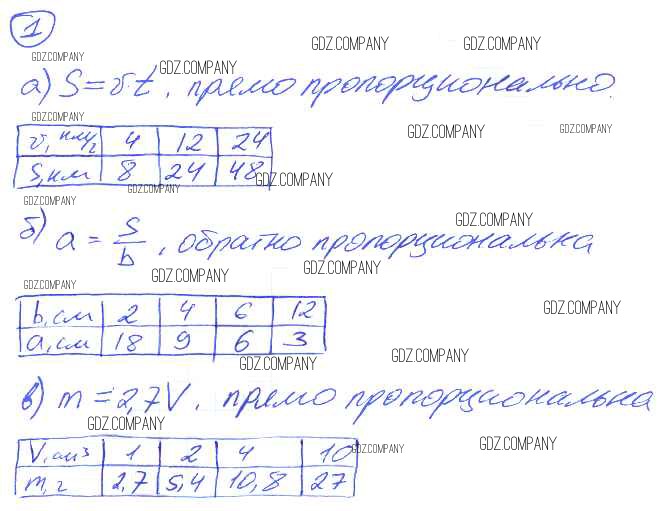 1
GDZ.COMPANY GDZ.COMPANY
GDZ.COMPANY
GDZ.COMPANY
а) S=v·t, прямо пропорционально.
GDZ.COMPANY GDZ.COMPANY
v, км/г 4 12 24
S, км 8 24 48
GDZ.COMPANY
GDZ.COMPANY
GDZ.COMPANY
GDZ.COMPANY
б) a = S/b, обратно пропорциональна
GDZ.COMPANY GDZ.COMPANY
GDZ.COMPANY
b, см 2 4 6 12
a, см 18 9 6 3
GDZ.COMPANY
GDZ.COMPANY
GDZ.COMPANY
в) m = 2,7V, прямо пропорциональна
GDZ.COMPANY
GDZ.COMPANY
GDZ.COMPANY
V, см3 1 2 4 10
m, г 2,7 5,4 10,8 27